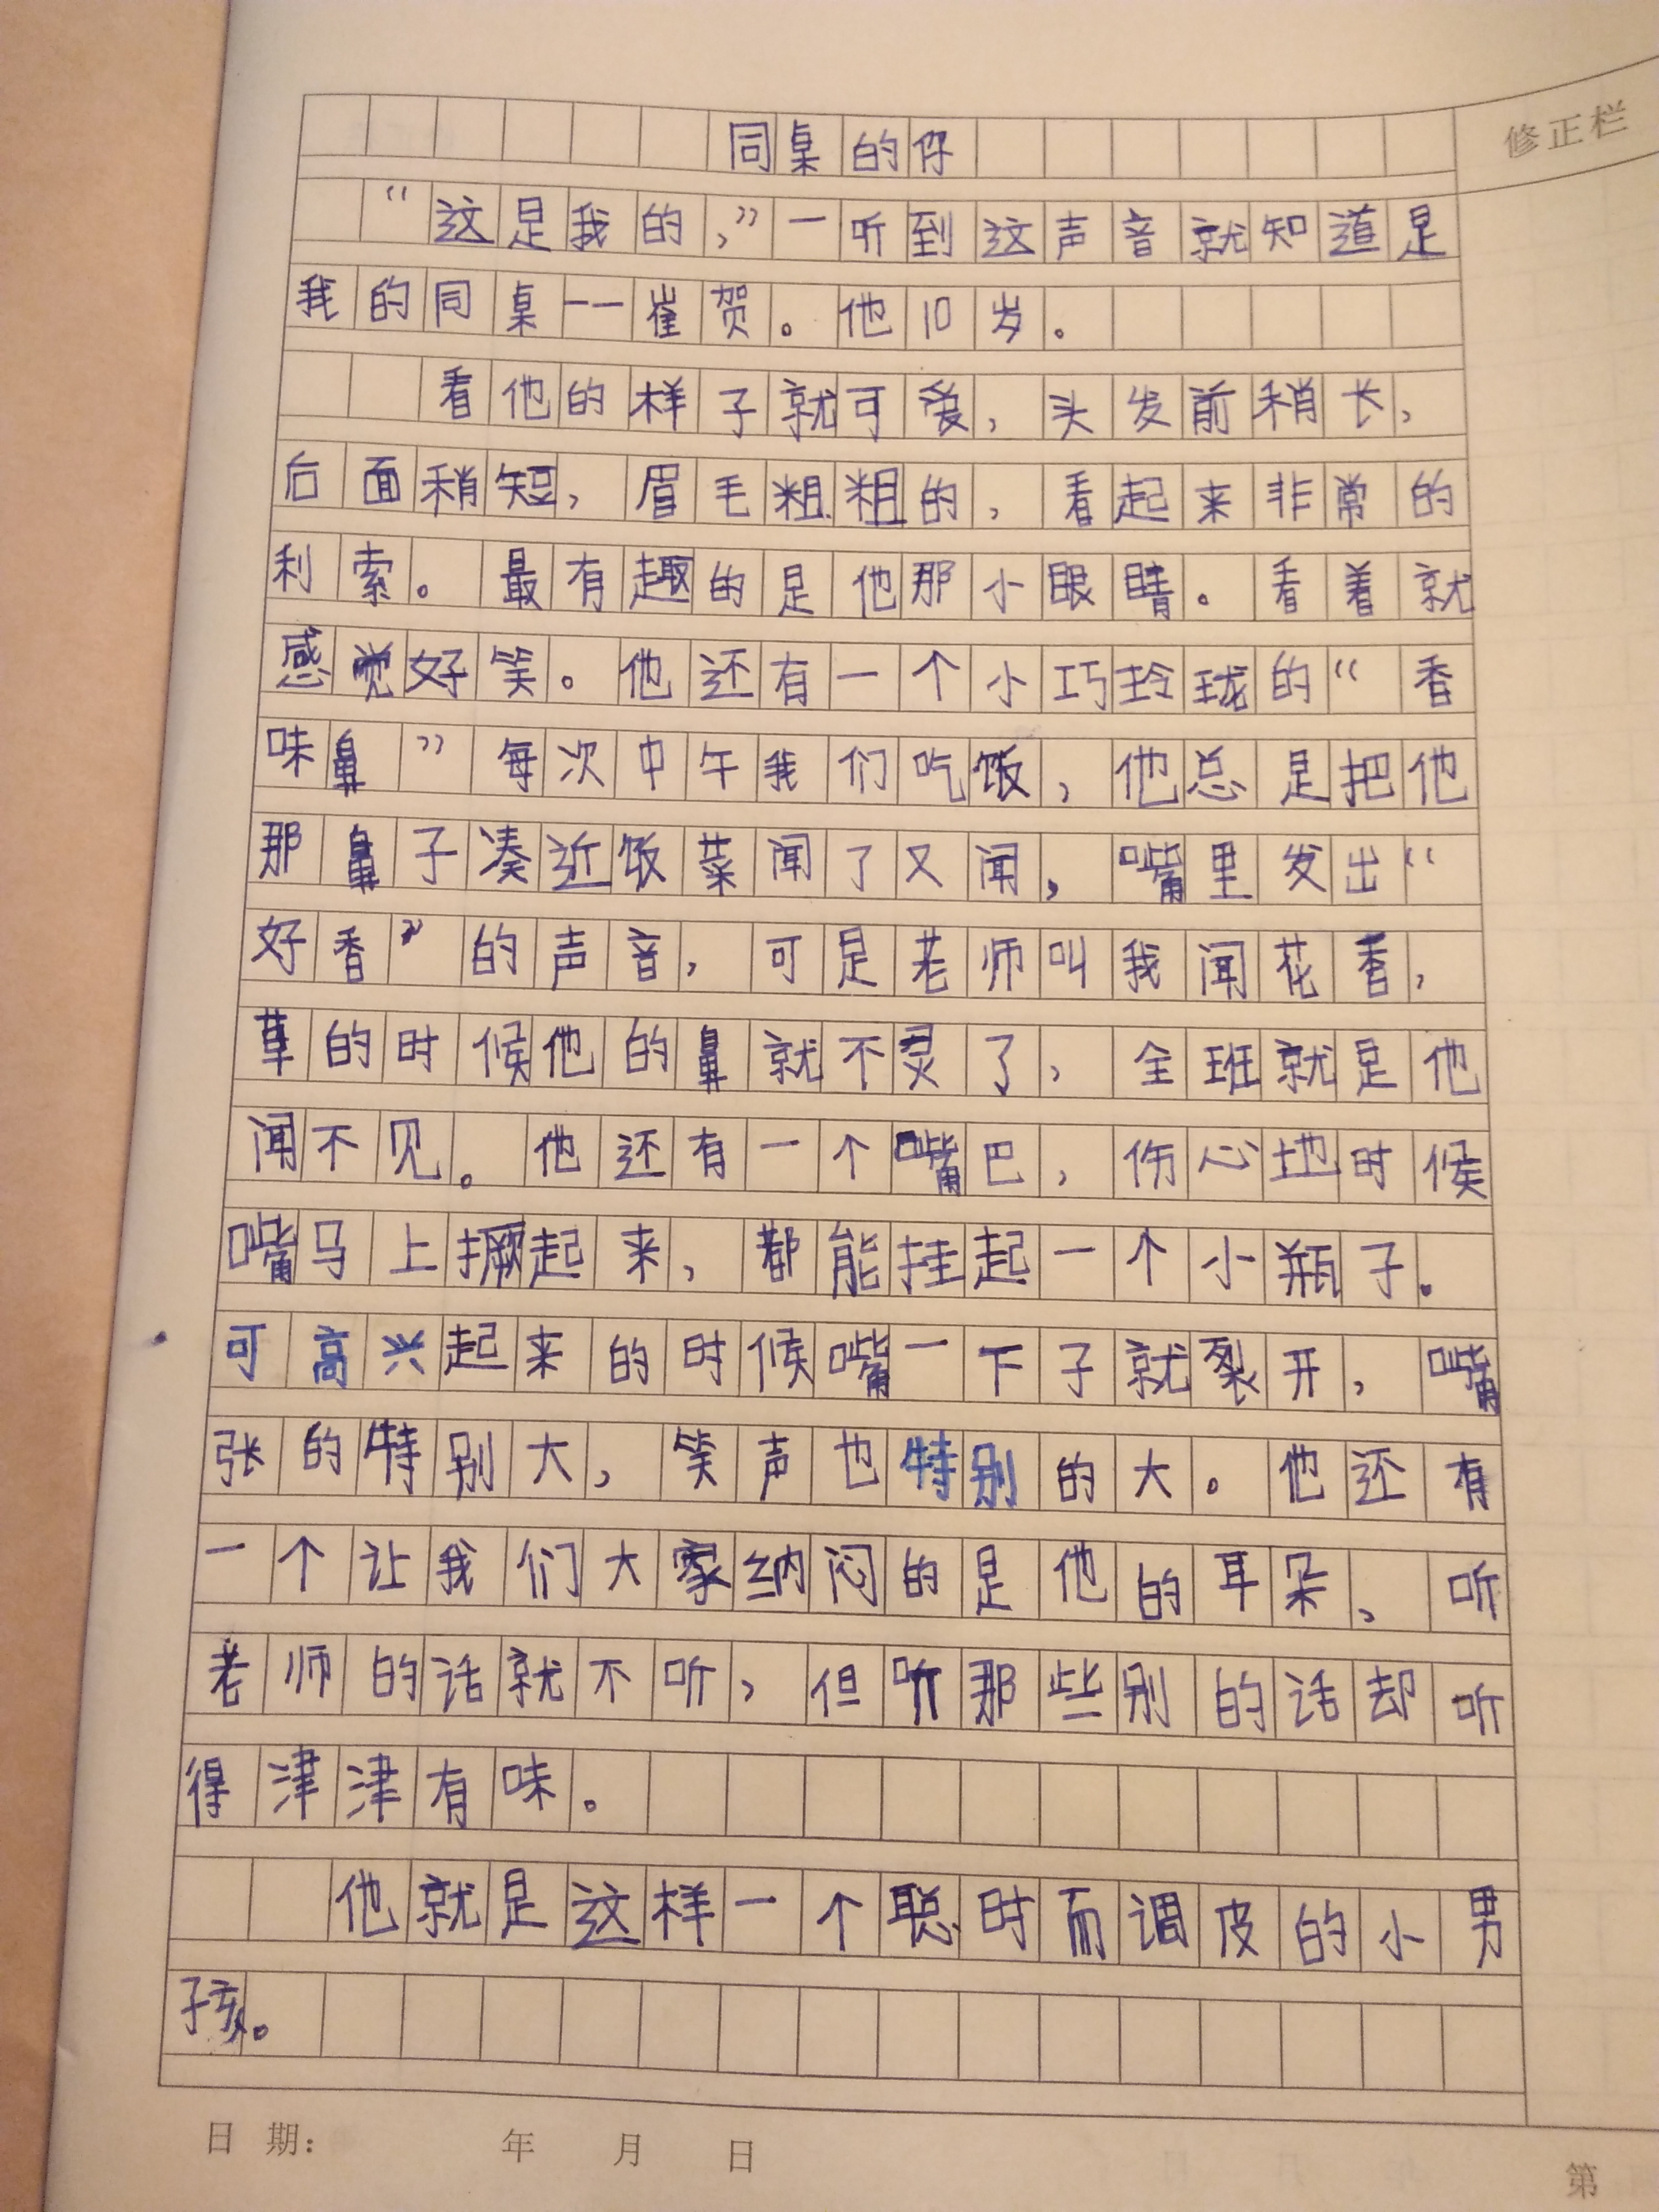 修正栏
同桌的你
“这是我的,”一听到这声音就知道是
我的同桌一一崔贺。他10岁。
看他的样子就可爱,头发前稍长,
后面稍短,眉毛粗粗的,看起来非常的
利索。最有趣的是他那小眼睛。看着就
感觉好笑。他还有一个小巧玲珑的“香
味鼻”每次中午我们吃饭,他总是把他
那鼻子凑近饭菜闻了又闻,嘴里发出“
好香”的声音,可是老师叫我闻花香,
草的时候他的鼻就不灵了,全班就是他
闻不见。他还有一个嘴巴,伤心地时候
嘴马上撅起来,都能挂起一个小瓶子。
可高兴起来的时候嘴一下子就裂开,嘴
张的特别大,笑声也特别的大。他还有
一个让我们大家纳闷的是他的耳朵,听
老师的话就不听,但听那些别的话却听
得津津有味。
他就是这样一个聪时而调皮的小男
孩。
日期: 年 月 日
第